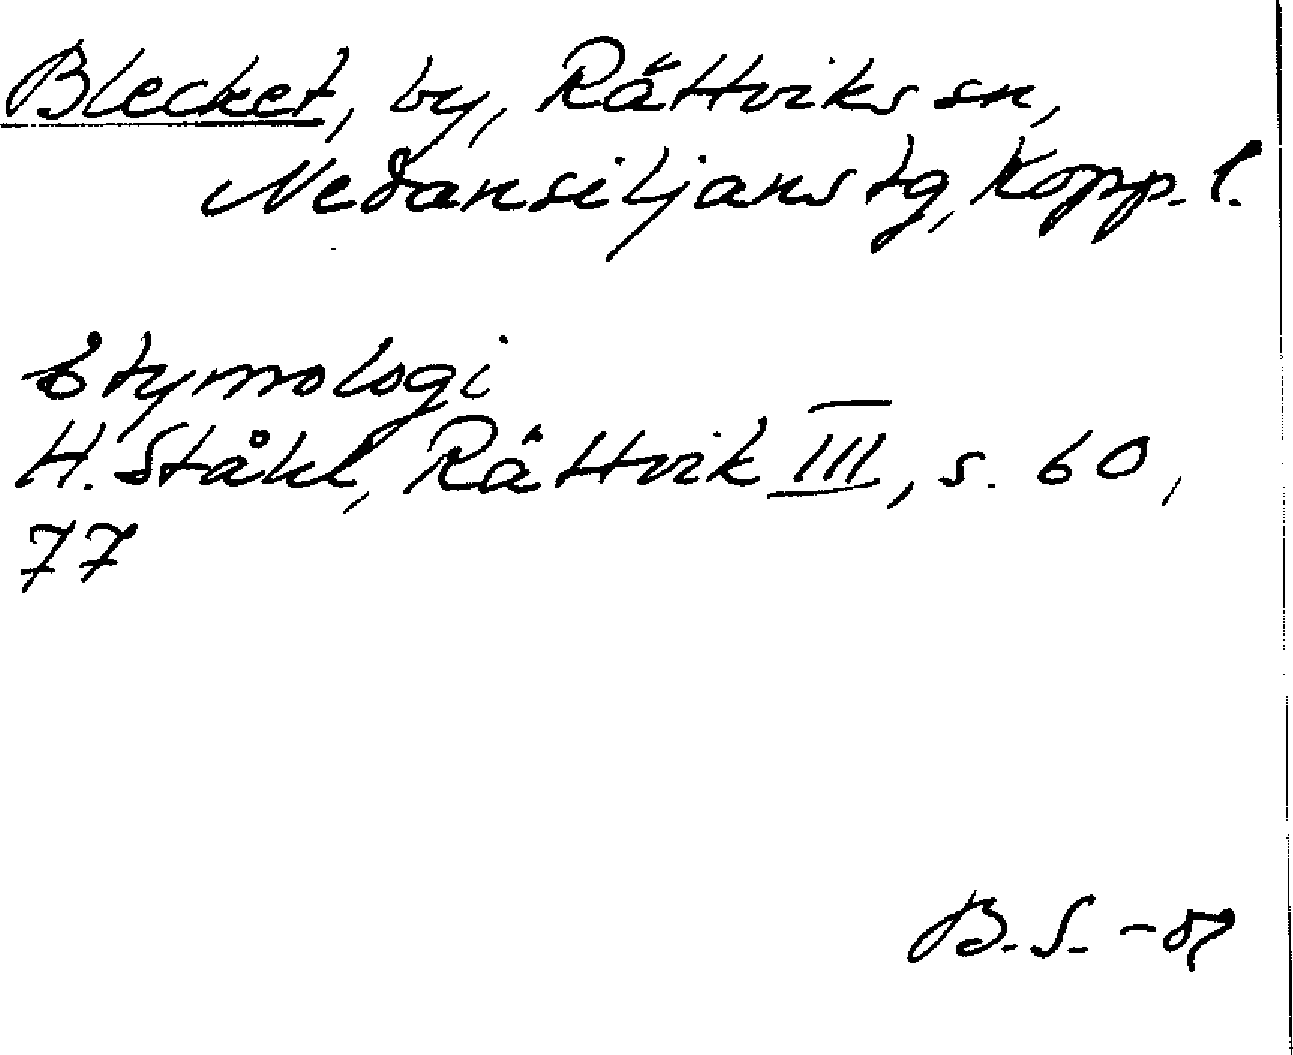 Blecket, by, Rättviks sn,
Nedansiljans tg, Kopp. l.
Etymologi
H. Ståhl, Rättvik III, s. 60,
77
B. S.